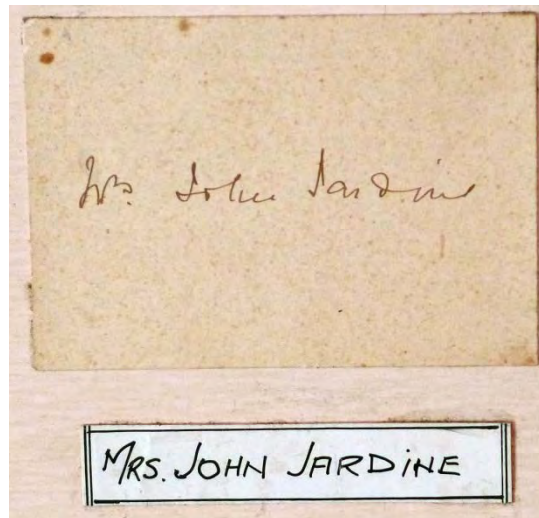 Mrs. John Jardine
MRS. JOHN JARDINE